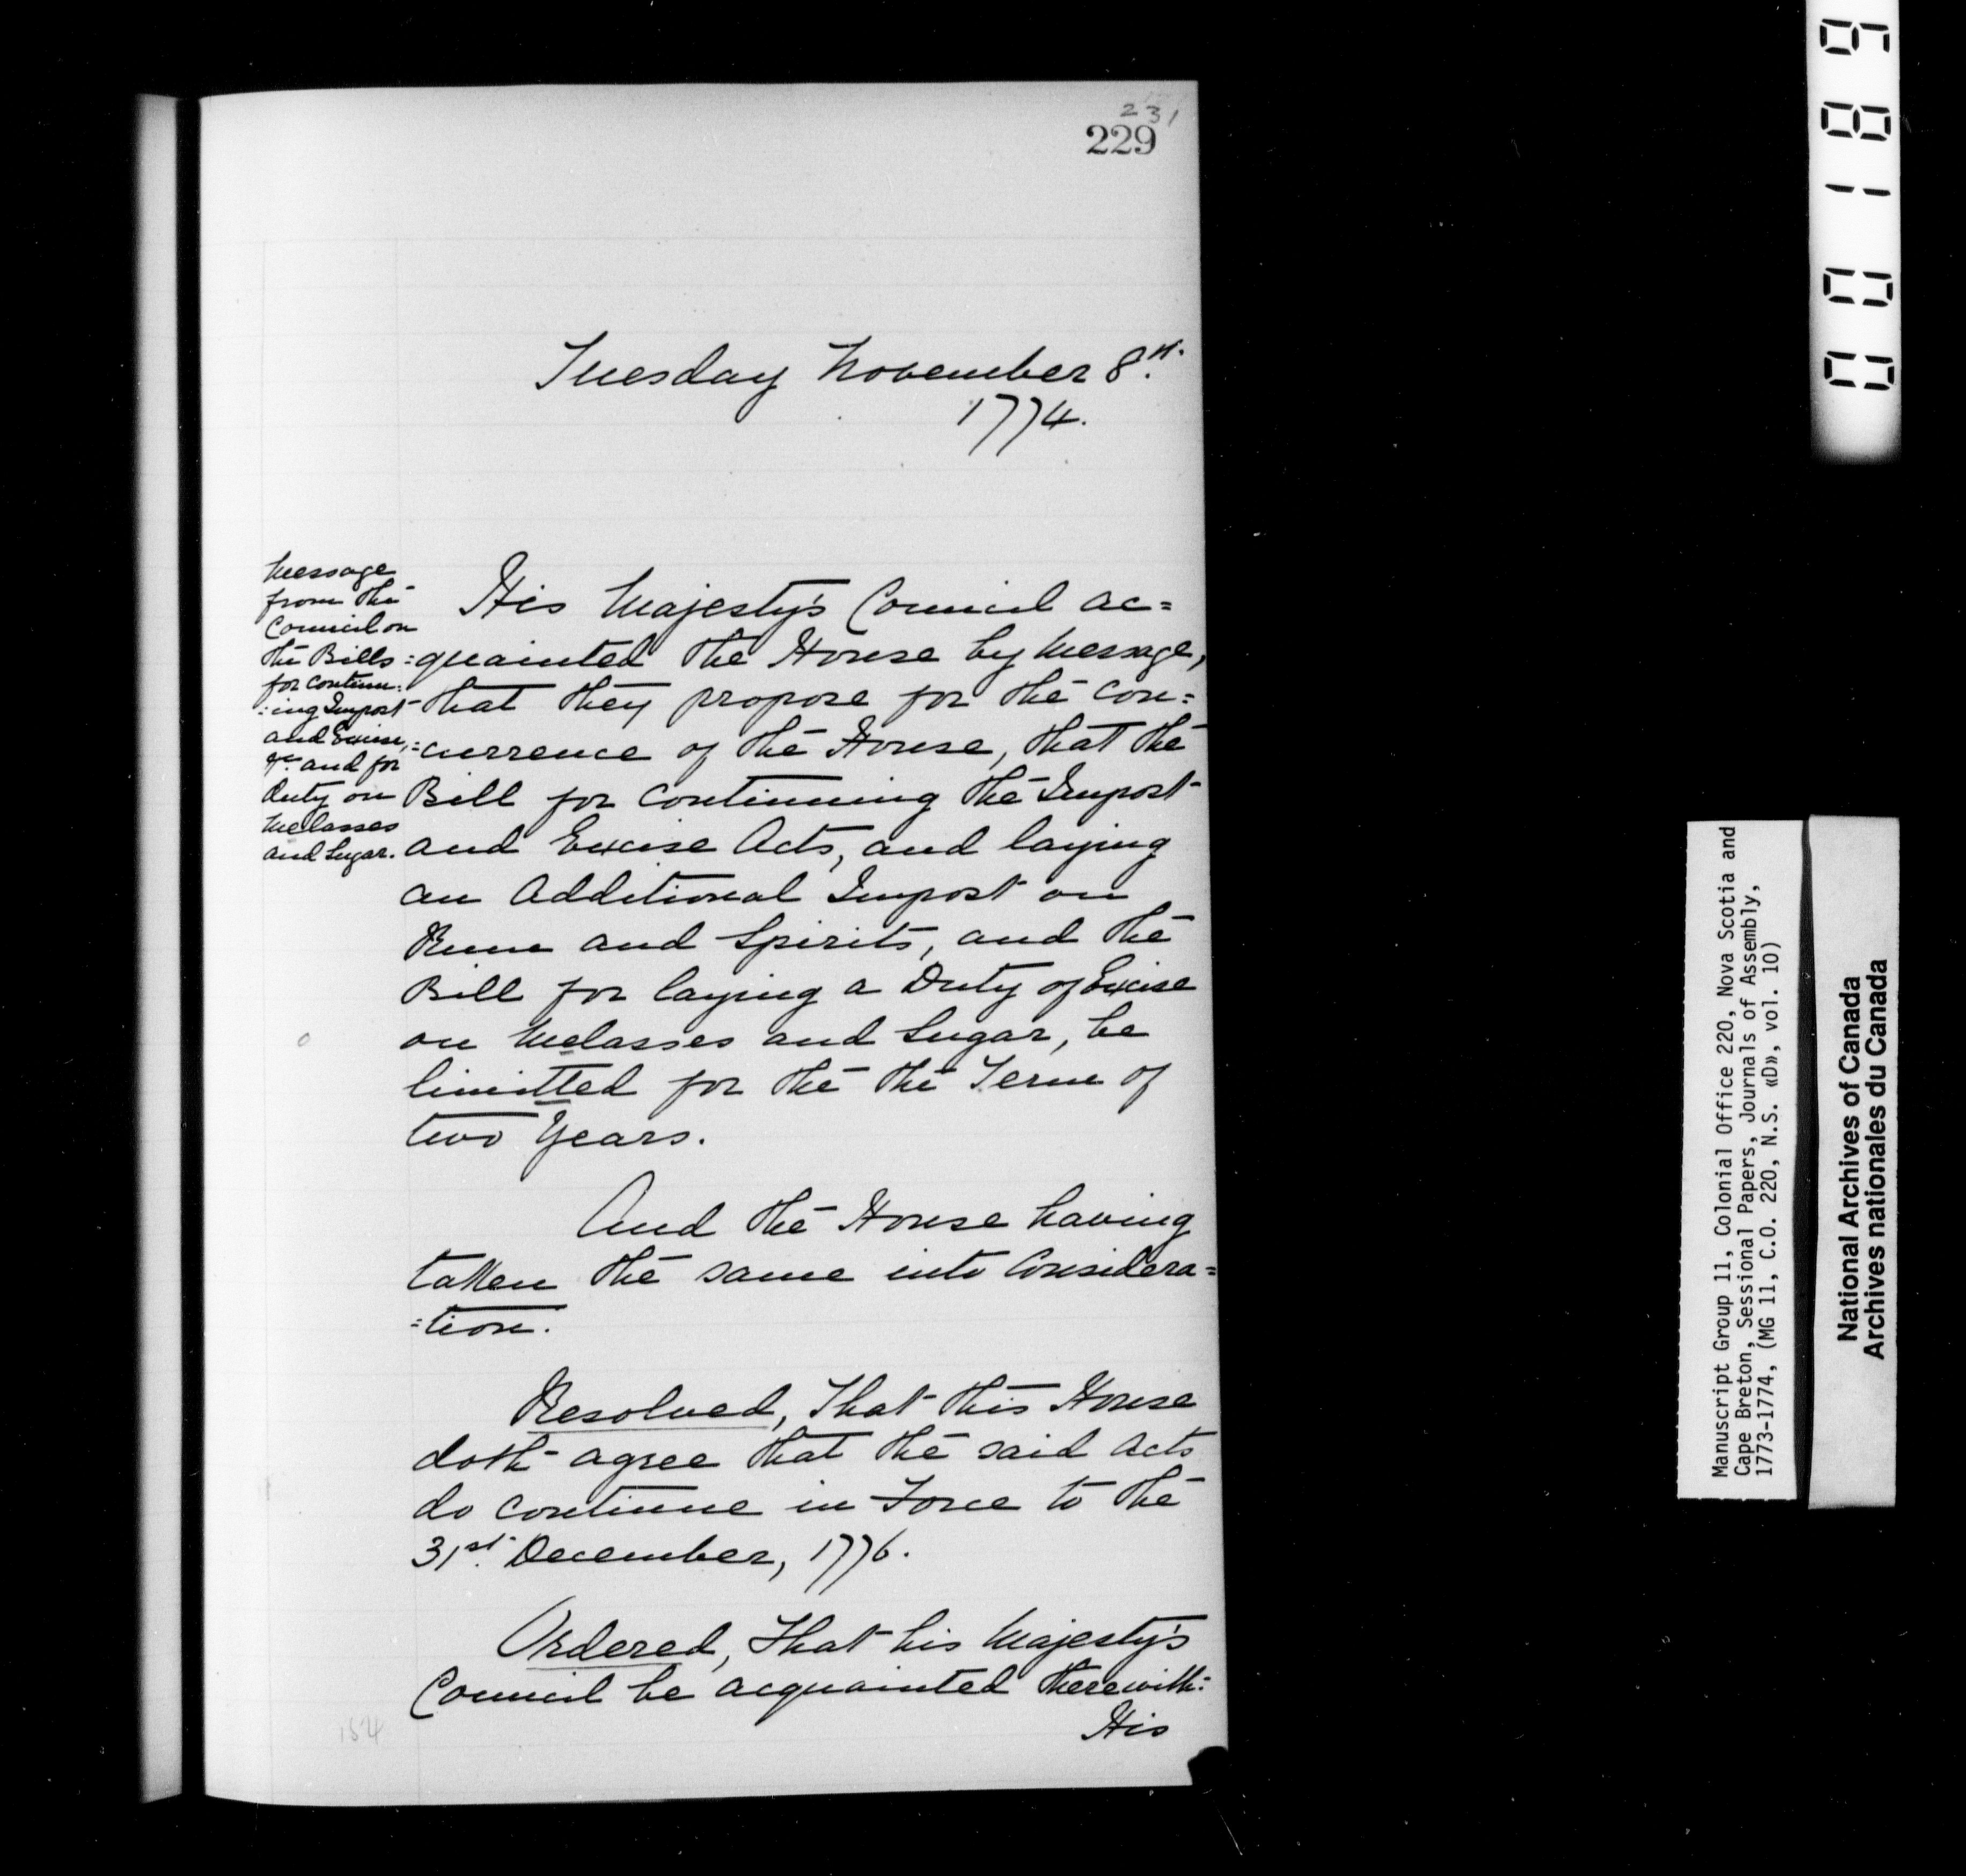 231
229
Tuesday November 8th.
1774.
Message
from the
Council on
the Bills
for continu:
:ing Impost
and Excise,
&c and for
Duty on
Melasses
and Sugar.
His Majesty's Council ac=
=quainted the House by Message,
that they propose for the Con=
=currence of the House, that the
Bill for Continuing the Impost
and Excise Acts, and laying
an Additional Impost on
Rum and Spirits, and the
Bill for laying a Duty of Excise
on Melasses and Sugar, be
limitted for the the Term of
two Years.
And the House having
taken the same into Considera=
=tion.
Resolved, That this House
doth agree that the said Acts
do continue in Force to the
31st. December, 1776.
Ordered, That his Majesty's
Council be acquainted therewith:
His
154
001819
Manuscript Group 11, Colonial Office 220, Nova Scotia and
Cape Breton, Sessional Papers, Journals of Assembly,
1773-1774, (MG 11, C.O. 220, N.S. «D», vol. 10)
National Archives of Canada
Archives nationales du Canada